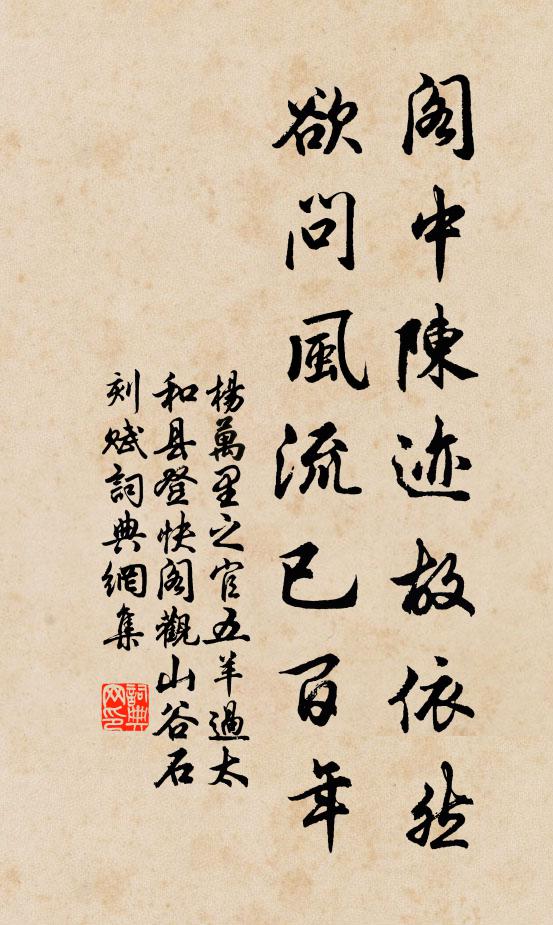 閣中陳迹故依然
欲問風流已百年
楊萬里之官五羊過太
和县登快閣觀山谷石
刻賦詞典網集
詞典
网印